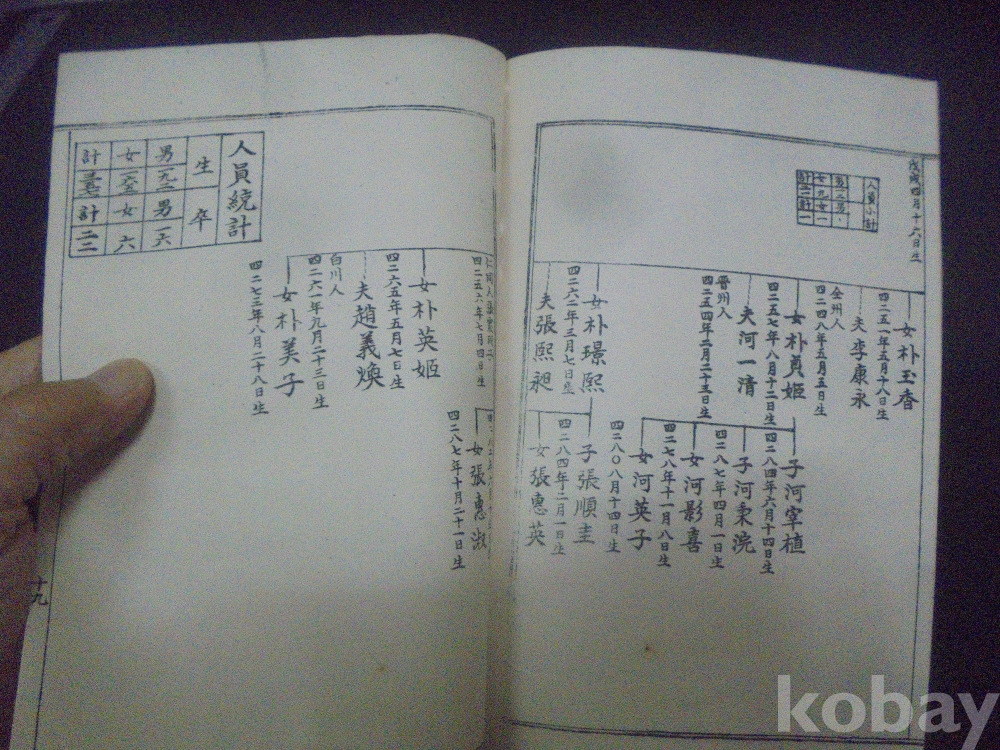 戊戌四月十六日生
人員小計
女朴玉香
四二五一年五月十八日生
夫李康永
全州人
四二四八年五月五日生
女朴貞姬
四二五七年八月十二日生
夫河一清
晋州人
四二五四年二月二十三日生
子河宰植
四二八四年六月十四日生
子河秉浣
四二八七年四月一日生
女河影喜
四二七八年十一月八日生
女河英子
四二八〇八月十四日生
女朴璟熙
四二六二年三月七日生
夫張熙昶
子張順圭
四二八四年二月一日生
女張惠英
四二五六年七月四日生
女張惠淑
四二八七年十月二十一日生
女朴英姬
四二六五年五月七日生
夫趙義煥
白川人
四二六一年九月二十三日生
女朴美子
四二七三年八月二十八日生
人員統計
生 卒
男 男 一六
女 女 六
計 計 二二
十九
kobay